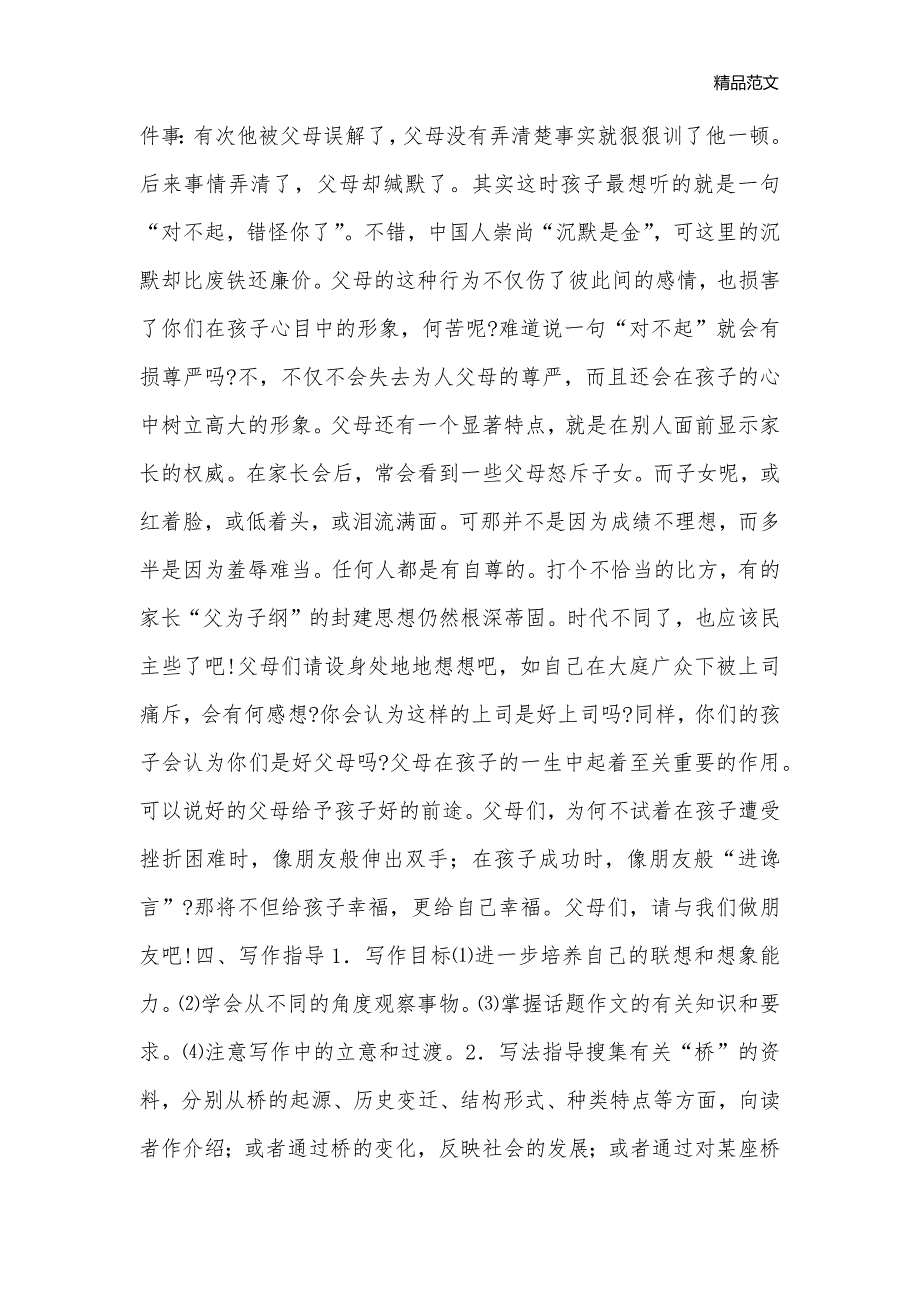 精品范文
件事:有次他被父母误解了,父母没有弄清楚事实就狠狠训了他一顿。
后来事情弄清了,父母却缄默了。其实这时孩子最想听的就是一句
“对不起,错怪你了”。不错,中国人崇尚“沉默是金”,可这里的沉
默却比废铁还廉价。父母的这种行为不仅伤了彼此间的感情,也损害
了你们在孩子心目中的形象,何苦呢?难道说一句“对不起”就会有
损尊严吗?不,不仅不会失去为人父母的尊严,而且还会在孩子的心
中树立高大的形象。父母还有一个显著特点,就是在别人面前显示家
长的权威。在家长会后,常会看到一些父母怒斥子女。而子女呢,或
红着脸,或低着头,或泪流满面。可那并不是因为成绩不理想,而多
半是因为羞辱难当。任何人都是有自尊的。打个不恰当的比方,有的
家长“父为子纲”的封建思想仍然根深蒂固。时代不同了,也应该民
主些了吧!父母们请设身处地地想想吧,如自己在大庭广众下被上司
痛斥,会有何感想?你会认为这样的上司是好上司吗?同样,你们的孩
子会认为你们是好父母吗?父母在孩子的一生中起着至关重要的作用。
可以说好的父母给予孩子好的前途。父母们,为何不试着在孩子遭受
挫折困难时,像朋友般伸出双手;在孩子成功时,像朋友般“进谗
言”?那将不但给孩子幸福,更给自己幸福。父母们,请与我们做朋
友吧!四、写作指导1．写作目标⑴进一步培养自己的联想和想象能
力。⑵学会从不同的角度观察事物。⑶掌握话题作文的有关知识和要
求。⑷注意写作中的立意和过渡。2．写法指导搜集有关“桥”的资
料,分别从桥的起源、历史变迁、结构形式、种类特点等方面,向读
者作介绍;或者通过桥的变化,反映社会的发展;或者通过对某座桥